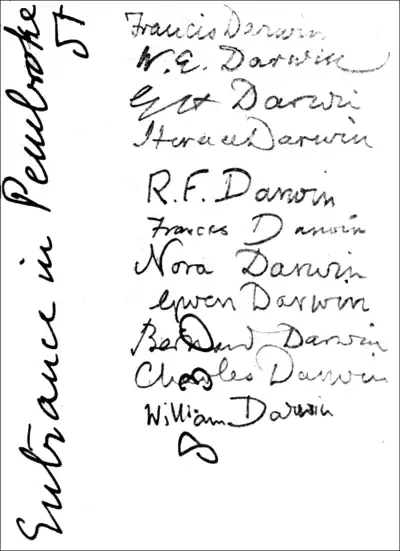 Francis Darwin
W. E. Darwin
Darwin
Horace Darwin
R. F. Darwin
Frances Darwin
Nora Darwin
Gwen Darwin
Bernard Darwin
Charles Darwin
William Darwin
Entrance in Pembroke
St
8 30